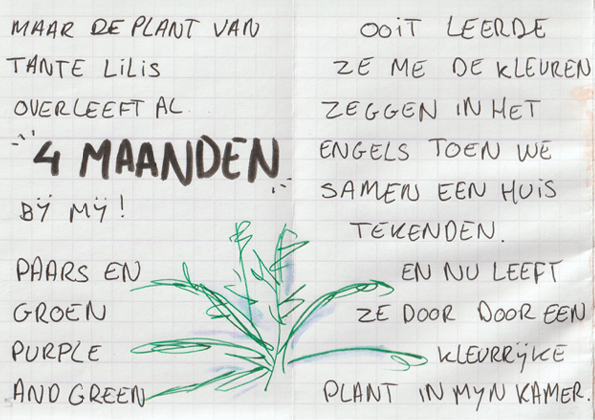 MAAR DE PLANT VAN
TANTE LILIS
OVERLEEFT AL
4 MAANDEN
BY MY!
PAARS EN
GROEN
PURPLE
AND GREEN
OOIT LEERDE
ZE ME DE KLEUREN
ZEGGEN IN HET
ENGELS TOEN WE
SAMEN EEN HUIS
TEKENDEN.
EN NU LEEFT
ZE DOOR DOOR EEN
KLEURRYKE
PLANT IN MYN KAMER.